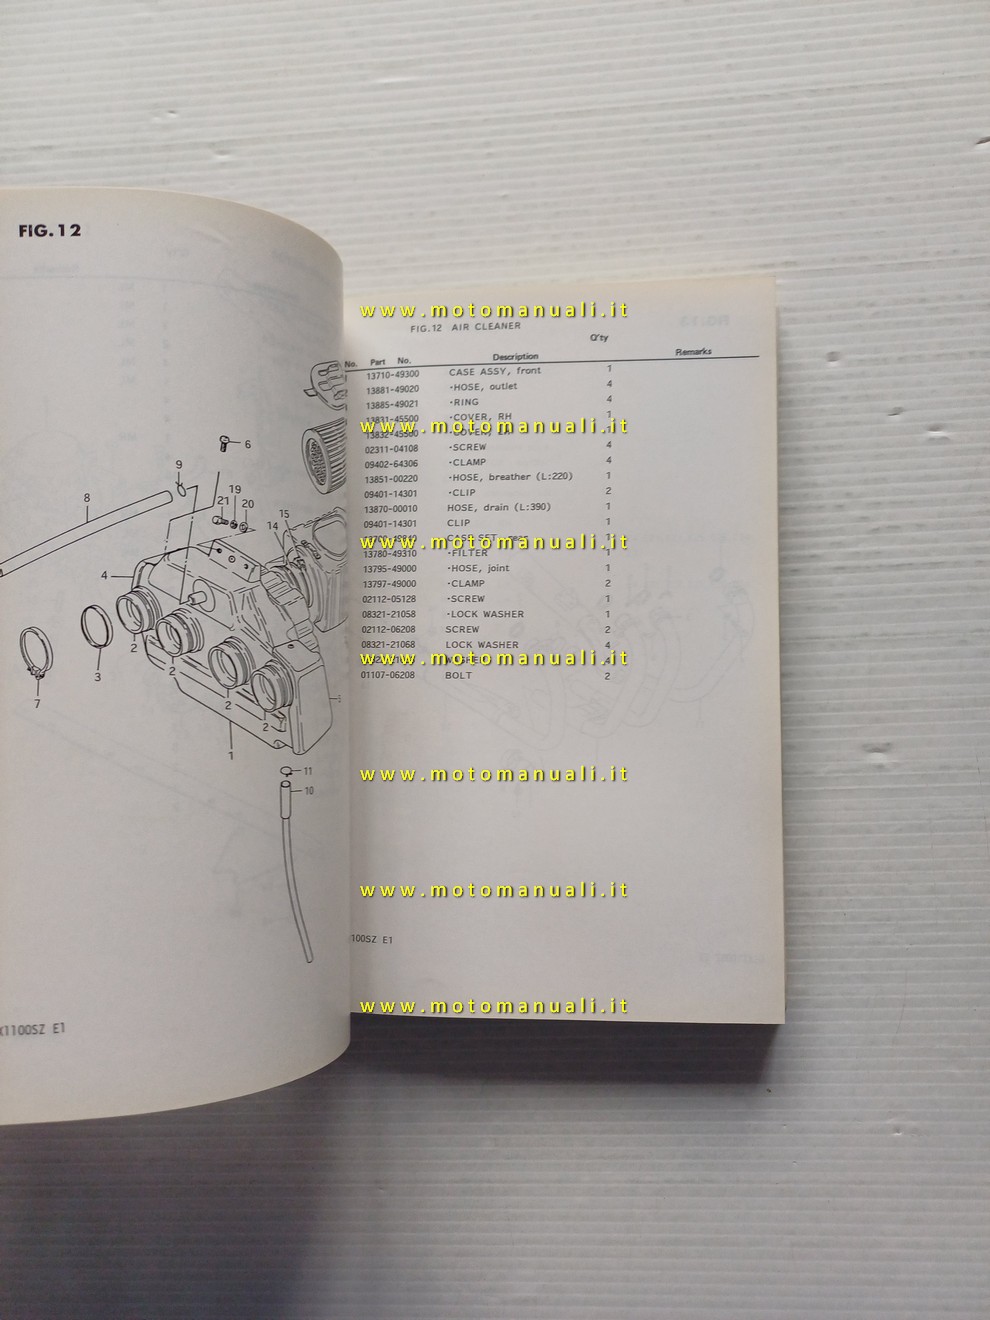 FIG.12
6
9
8
21 19 20
15
14
4
2
2
3
7
2
2
1
11
10
X1100SZ E1
www.motomanuali.it
FIG.12 AIR CLEANER
No. Part No. Description Q'ty Remarks
13710-49300 CASE ASSY, front 1
13881-49020 ·HOSE, outlet 4
13885-49021 ·RING 4
13831-45500 ·COVER, RH 1
www.motomanuali.it
02311-04108 ·SCREW 4
09402-64306 ·CLAMP 4
13851-00220 ·HOSE, breather (L:220) 1
09401-14301 ·CLIP 2
13870-00010 HOSE, drain (L:390) 1
09401-14301 CLIP 1
CASE SET, rear 1
www.motomanuali.it
13780-49310 ·FILTER 1
13795-49000 ·HOSE, joint 1
13797-49000 ·CLAMP 2
02112-05128 ·SCREW 1
08321-21058 ·LOCK WASHER 1
02112-06208 SCREW 2
08321-21068 LOCK WASHER 4
www.motomanuali.it
01107-06208 BOLT 2
www.motomanuali.it
www.motomanuali.it
1100SZ E1
www.motomanuali.it